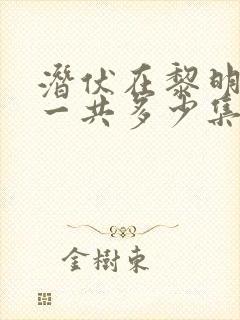 潛伏在黎明
一共多少集
金樹東